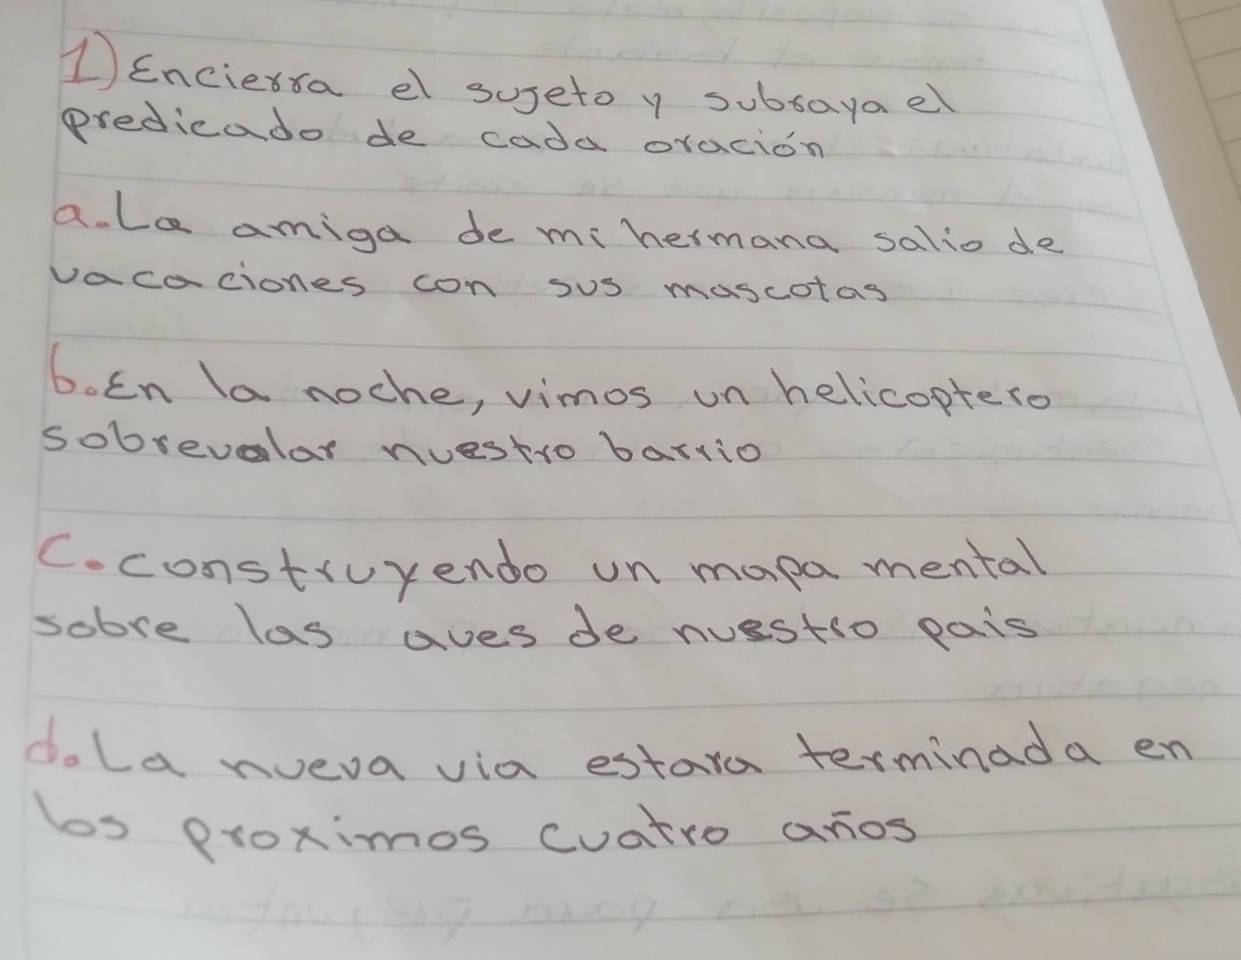 1) Encierra el sujeto y subraya el
predicado de cada oración
a. La amiga de mi hermana salio de
vacaciones con sus mascotas
b. En la noche, vimos un helicoptero
sobrevolar nuestro barrio
c. construyendo un mapa mental
sobre las aves de nuestro pais
d. La nueva via estara terminada en
los proximos cuatro años